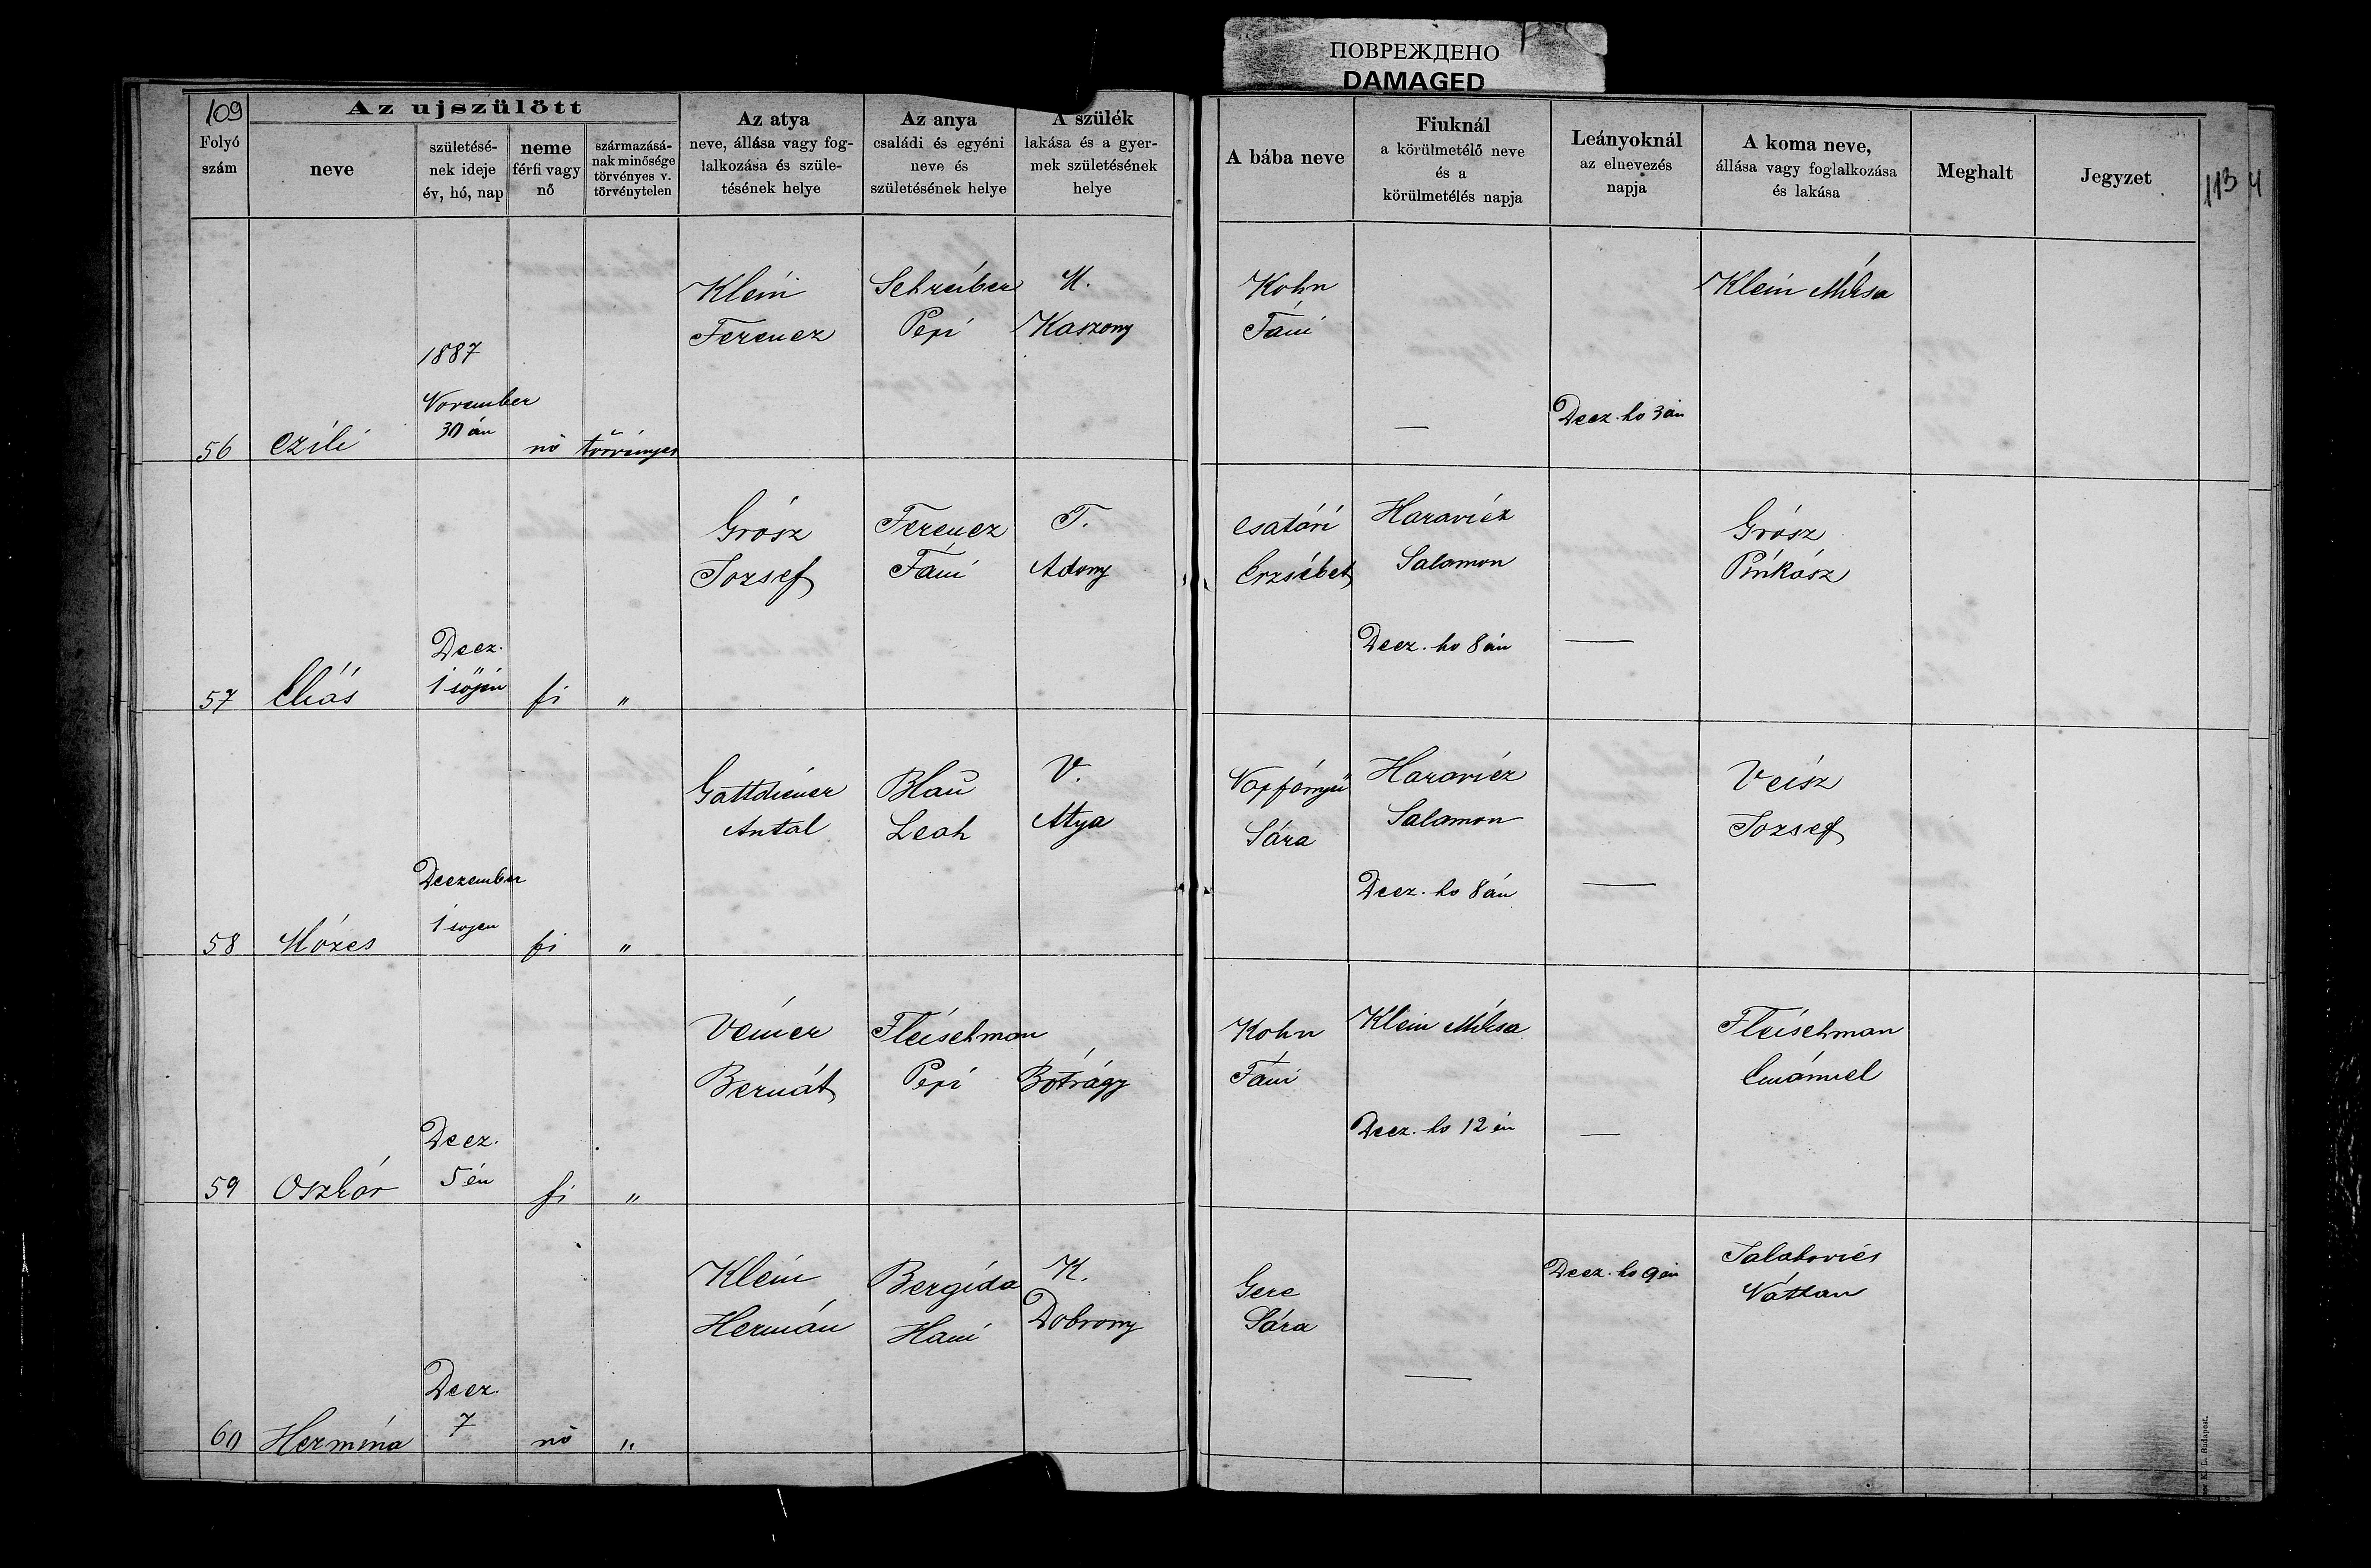 ПОВРЕЖДЕНО
DAMAGED
109
Az ujszülött
Folyó szám
neve
születésé-
nek ideje
év, hó, nap
neme
férfi vagy
nő
származásá-
nak minősége
törvényes v.
törvénytelen
Az atya
neve, állása vagy fog-
lalkozása és szüle-
tésének helye
Az anya
családi és egyéni
neve és
születésének helye
A szülék
lakása és a gyer-
mek születésének
helye
A bába neve
Fiuknál
a körülmetélő neve
és a
körülmetélés napja
Leányoknál
az elnevezés
napja
A koma neve,
állása vagy foglalkozása
és lakása
Meghalt
Jegyzet
113 4
56
Czili
1887
November
30 án
nő
törvényes
Klein
Ferencz
Schreiber
Pepi
M.
Kaszony
Kohn
Fáni
—
Decz. ho 3 án
Klein Miksa
57
Eliás
Decz.
1 sőjén
fi
"
Grósz
Jozsef
Ferencz
Fáni
T.
Adony
Csatári
Erzsébet
Haravicz
Salamon
Decz. ho 8 án
—
Grósz
Pinkász
58
Mózes
Deczember
1 sojen
fi
"
Gattdiener
Antal
Blau
Leah
V.
Atya
Napfényü
Sára
Haravicz
Salamon
Decz. ho 8 án
—
Veisz
Jozsef
59
Oszkár
Decz.
5 én
fi
"
Véiner
Bernát
Fleischman
Pepi
Bótrágy
Kohn
Fáni
Klein Miksa
Decz. ho 12 én
—
Fleischman
Emánuel
60
Hermina
Decz.
7
nő
"
Klein
Hermán
Bergida
Hani
K.
Dobrony
Gere
Sára
—
Decz. ho 9 én
Jalakovics
Náttan
K. L. Budapest.